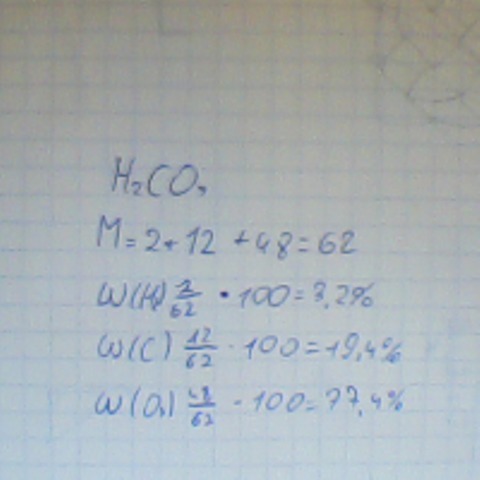 H₂CO₃
M = 2 + 12 + 48 = 62
W(H) 2/62 • 100 = 3,2%
W(C) 12/62 · 100 = 19,4%
W(O₃) 48/62 · 100 = 77,4%